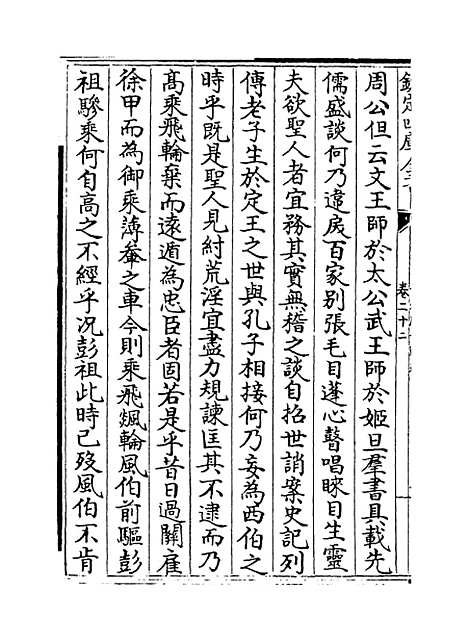 欽定四庫全書
卷二十二
周公但云文王師於太公武王師於姬旦羣書具載先
儒盛談何乃違戾百家别張毛目蓬心瞽唱睞目生靈
夫欲聖人者宜務其實無稽之談自招世誚案史記列
傳老子生於定王之世與孔子相接何乃妄為西伯之
時乎既是聖人見紂荒淫宜盡力規諫匡其不逮而乃
髙乘飛輪棄而遠遁為忠臣者固若是乎昔日過關雇
徐甲而為御乘薄軬之車今則乘飛飈輪風伯前驅彭
祖驂乘何自高之不經乎况彭祖此時已殁風伯不肯